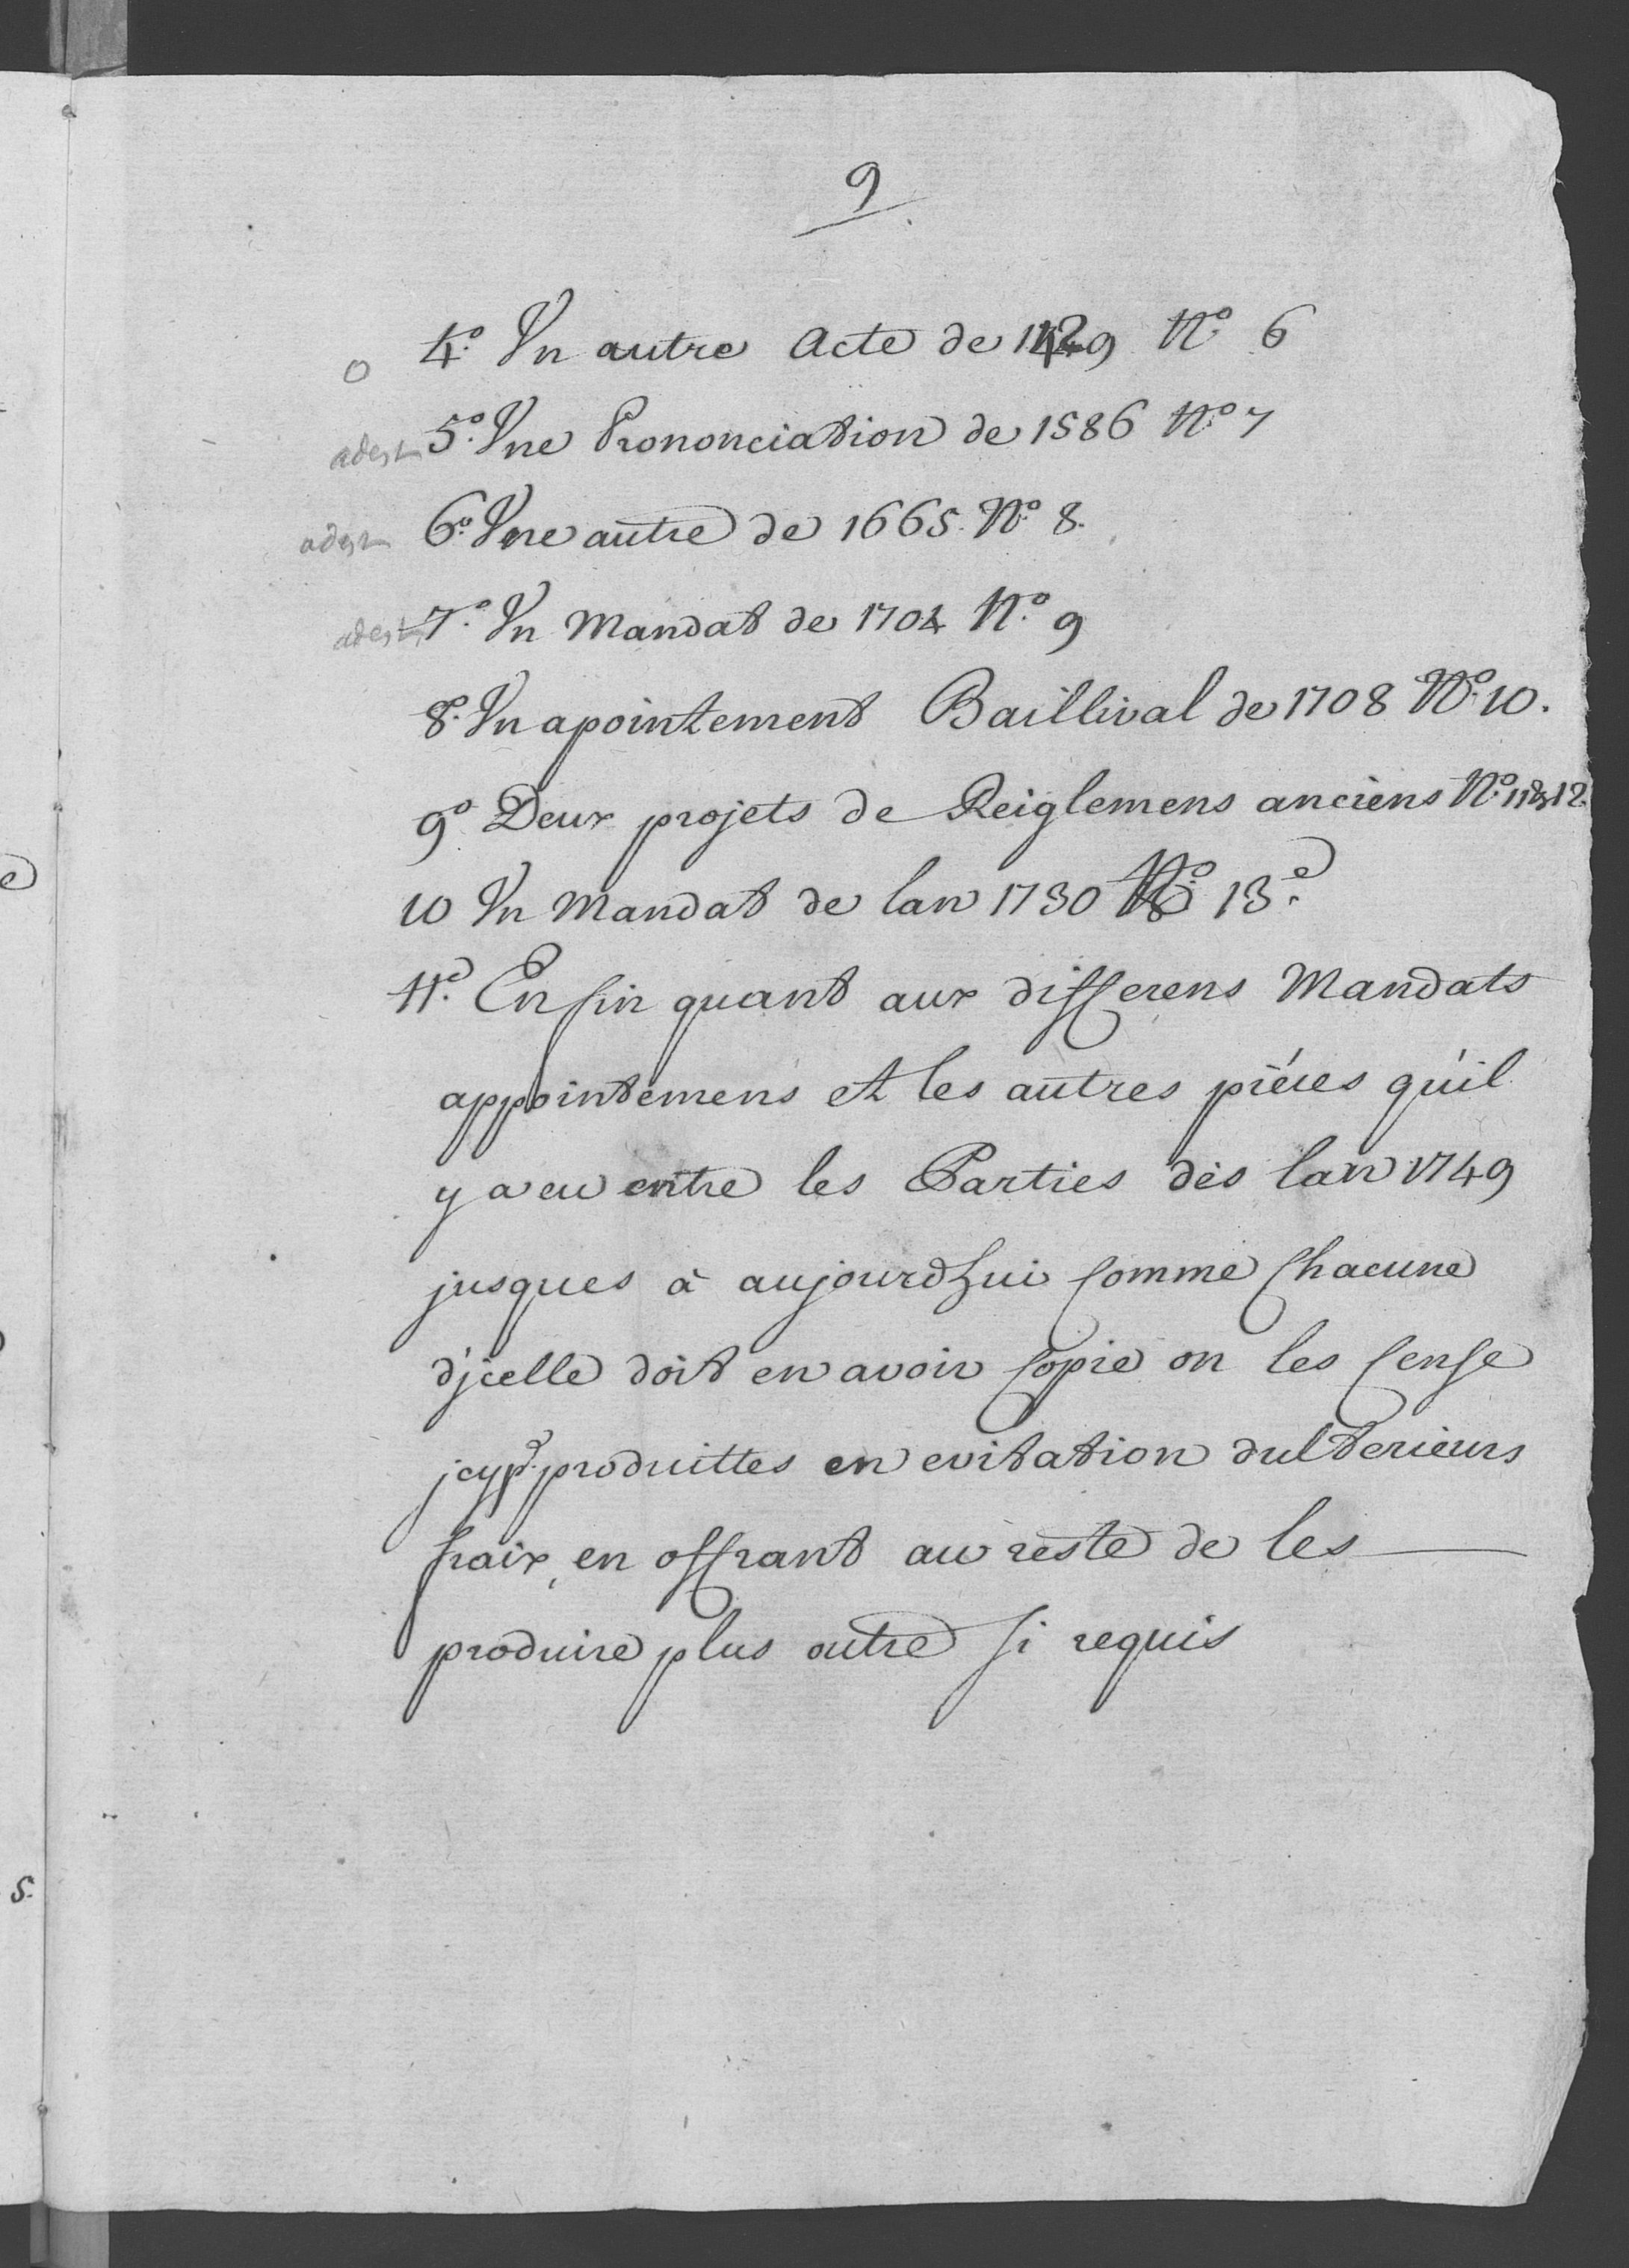 9
o 4.º Un autre Acte de 1429 Nº. 6
adest 5.º Une Prononciation de 1586 Nº. 7
adest 6.º Une autre de 1665. Nº. 8.
adest 7.º Un Mandat de 1704 Nº. 9
8.º Un apointement Baillival de 1708 Nº. 10.
9º Deux projets de Reiglemens anciens Nº. 11 & 12.
10 Un Mandat de lan 1730 Nº. 13.e
11.e Enfin quant aux differens Mandats
appointemens et les autres piéces qu'il
y a eu entre les Parties dès lan 1749
jusques à aujourdhui comme chacune
d'jcelle doit en avoir copie on les cense
jcy produittes en evitation dulterieurs
fraix, en offrant au reste de les
produire plus outre si requis